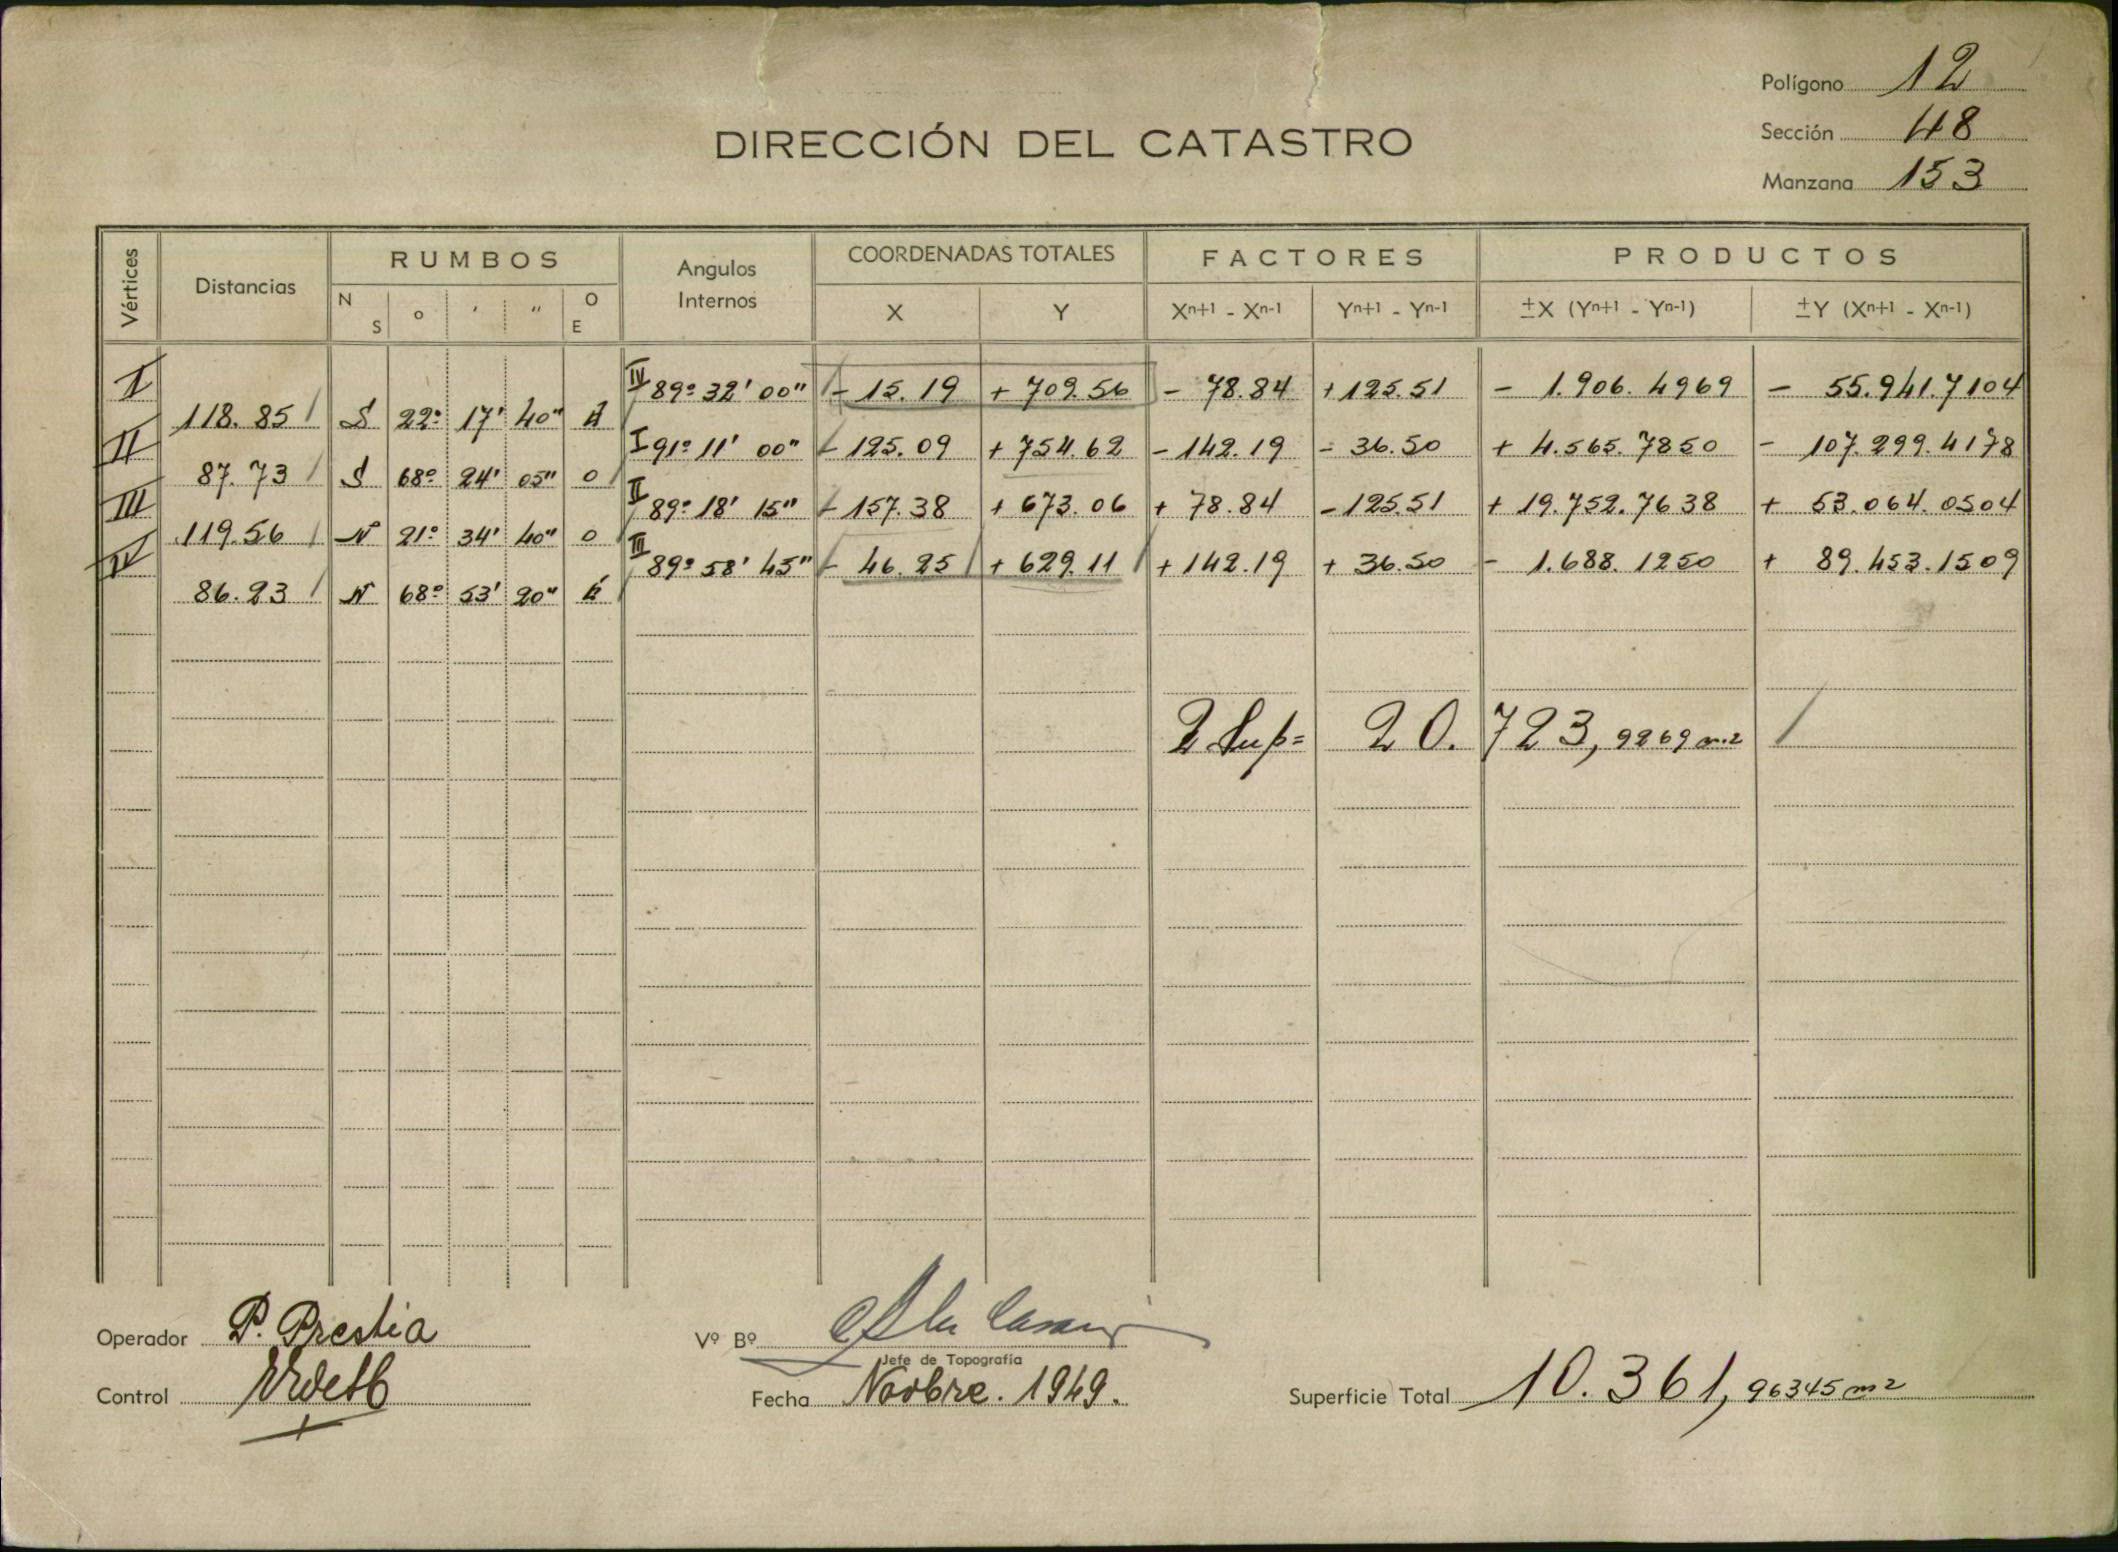 Polígono 12
Sección 48
Manzana 153
DIRECCIÓN DEL CATASTRO
Vértices Distancias RUMBOS Angulos Internos COORDENADAS TOTALES FACTORES PRODUCTOS
N S o ' " O E X Y Xn+1 - Xn-1 Yn+1 - Yn-1 ±X (Yn+1 - Yn-1) ±Y (Xn+1 - Xn-1)
I IV 89º 32' 00" - 15.19 + 709.56 - 78.84 + 125.51 - 1.906.4969 - 55.941.7104
118.85 S 22º 17' 40" E
II I 91º 11' 00" - 125.09 + 754.62 - 142.19 - 36.50 + 4.565.7850 - 107.299.4178
87.73 S 68º 24' 05" O
III II 89º 18' 15" - 157.38 + 673.06 + 78.84 - 125.51 + 19.752.7638 + 53.064.0504
119.56 N 21º 34' 40" O
IV III 89º 58' 45" - 46.25 + 629.11 + 142.19 + 36.50 - 1.688.1250 + 89.453.1509
86.23 N 68º 53' 20" E
2 Sup= 20.723,9269 m2
Operador P. Prestia
Vº Bº
Jefe de Topografía
Control
Fecha Novbre. 1949.
Superficie Total 10.361,96345 m2